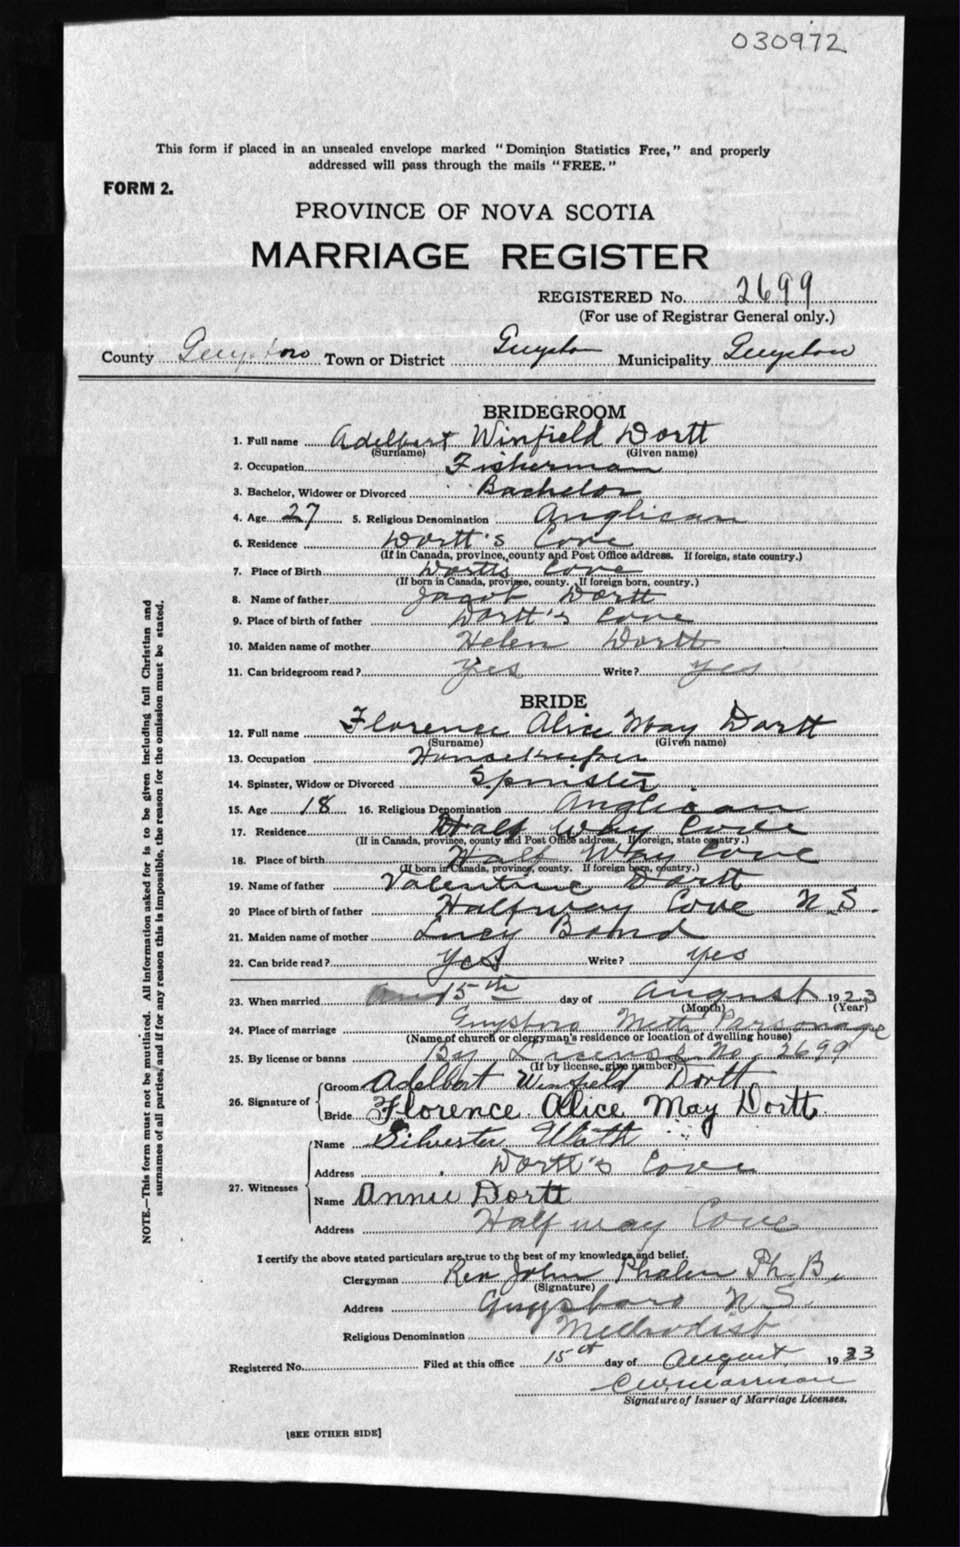 030972
This form if placed in an unsealed envelope marked "Dominion Statistics Free," and properly
addressed will pass through the mails "FREE."
FORM 2.
PROVINCE OF NOVA SCOTIA
MARRIAGE REGISTER
REGISTERED No. 2699
(For use of Registrar General only.)
County Guysboro Town or District Guysboro Municipality Guysboro
BRIDEGROOM
1. Full name Adelbert Winfield Dortt
(Surname) (Given name)
2. Occupation Fisherman
3. Bachelor, Widower or Divorced Bachelor
4. Age 27 5. Religious Denomination Anglican
6. Residence Dortt's Cove
(If in Canada, province, county and Post Office address. If foreign, state country.)
7. Place of Birth Dortts Cove
(If born in Canada, province, county. If foreign born, country.)
8. Name of father Jacob Dortt
9. Place of birth of father Dortt's Cove
10. Maiden name of mother Helen Dortt
11. Can bridegroom read? Yes Write? Yes
BRIDE
12. Full name Florence Alice May Dortt
(Surname) (Given name)
13. Occupation Housekeeper
14. Spinster, Widow or Divorced Spinster.
15. Age 18 16. Religious Denomination Anglican
17. Residence Half Way Cove
(If in Canada, province, county and Post Office address. If foreign, state country.)
18. Place of birth Half Way Cove
(If born in Canada, province, county. If foreign born, country.)
19. Name of father Valentine Dortt
20 Place of birth of father Halfway Cove N.S.
21. Maiden name of mother Lucy Bond
22. Can bride read? Yes Write? Yes
23. When married 15th day of August 1923
(Month) (Year)
24. Place of marriage Guysboro Meth Parsonage
(Name of church or clergyman's residence or location of dwelling house)
25. By license or banns By License No. 2699
(If by license, give number)
26. Signature of
Groom Adelbert Winfield Dortt
Bride Florence Alice May Dortt
27. Witnesses
Name Silvester
Address Dortt's Cove
Name Annie Dortt
Address Half way Cove
I certify the above stated particulars are true to the best of my knowledge and belief.
Clergyman Rev John Phalen Ph.B.
(Signature)
Address Guysboro N.S.
Religious Denomination Methodist
Registered No. Filed at this office 15th day of August 1923
Signature of Issuer of Marriage Licenses.
[SEE OTHER SIDE]
NOTE.—This form must not be mutilated. All information asked for is to be given including full Christian and
surnames of all parties, and if for any reason this is impossible, the reason for the omission must be stated.